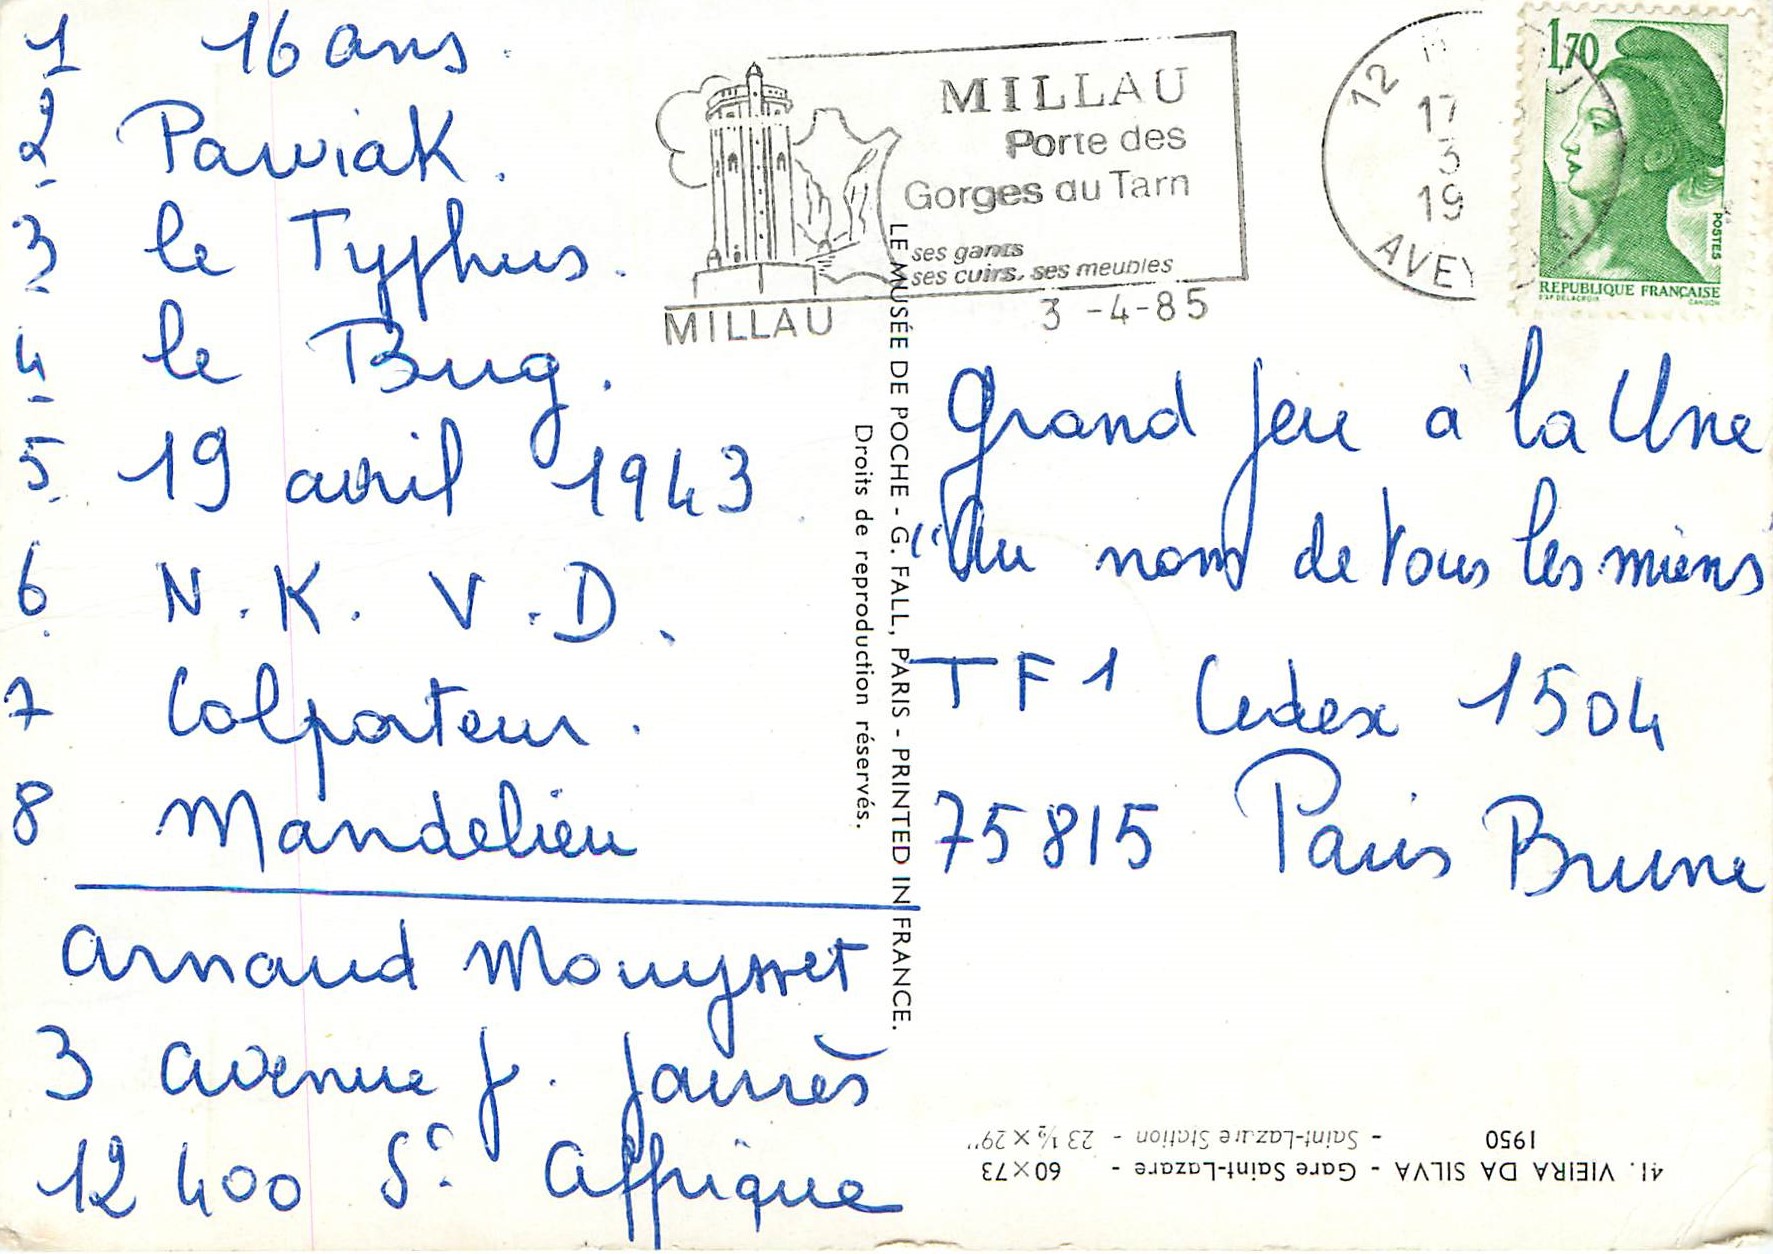 1 16 ans.
2 Pawiak.
3 le Typhus.
4 le Bug.
5 19 avril 1943
6 N.K.V.D.
7 Colporteur.
8 Mandelieu
Arnaud Mouysset
3 avenue J. Jaurès
12 400 St Affrique
MILLAU
Porte des
Gorges du Tarn
ses gants
ses cuirs, ses meubles
MILLAU
3 -4-85
12
17
3
19
AVEY
1,70
POSTES
REPUBLIQUE FRANÇAISE
D'AP DELACROIX
GANDON
LE MUSÉE DE POCHE - G. FALL, PARIS - PRINTED IN FRANCE.
Droits de reproduction réservés.
Grand Jeu à la Une
"Au nom de tous les miens"
TF1 Cedex 1504
75815 Paris Brune
41. VIEIRA DA SILVA - Gare Saint-Lazare - 60×73
1950 - Saint-Lazare Station - 23 ½ × 29"